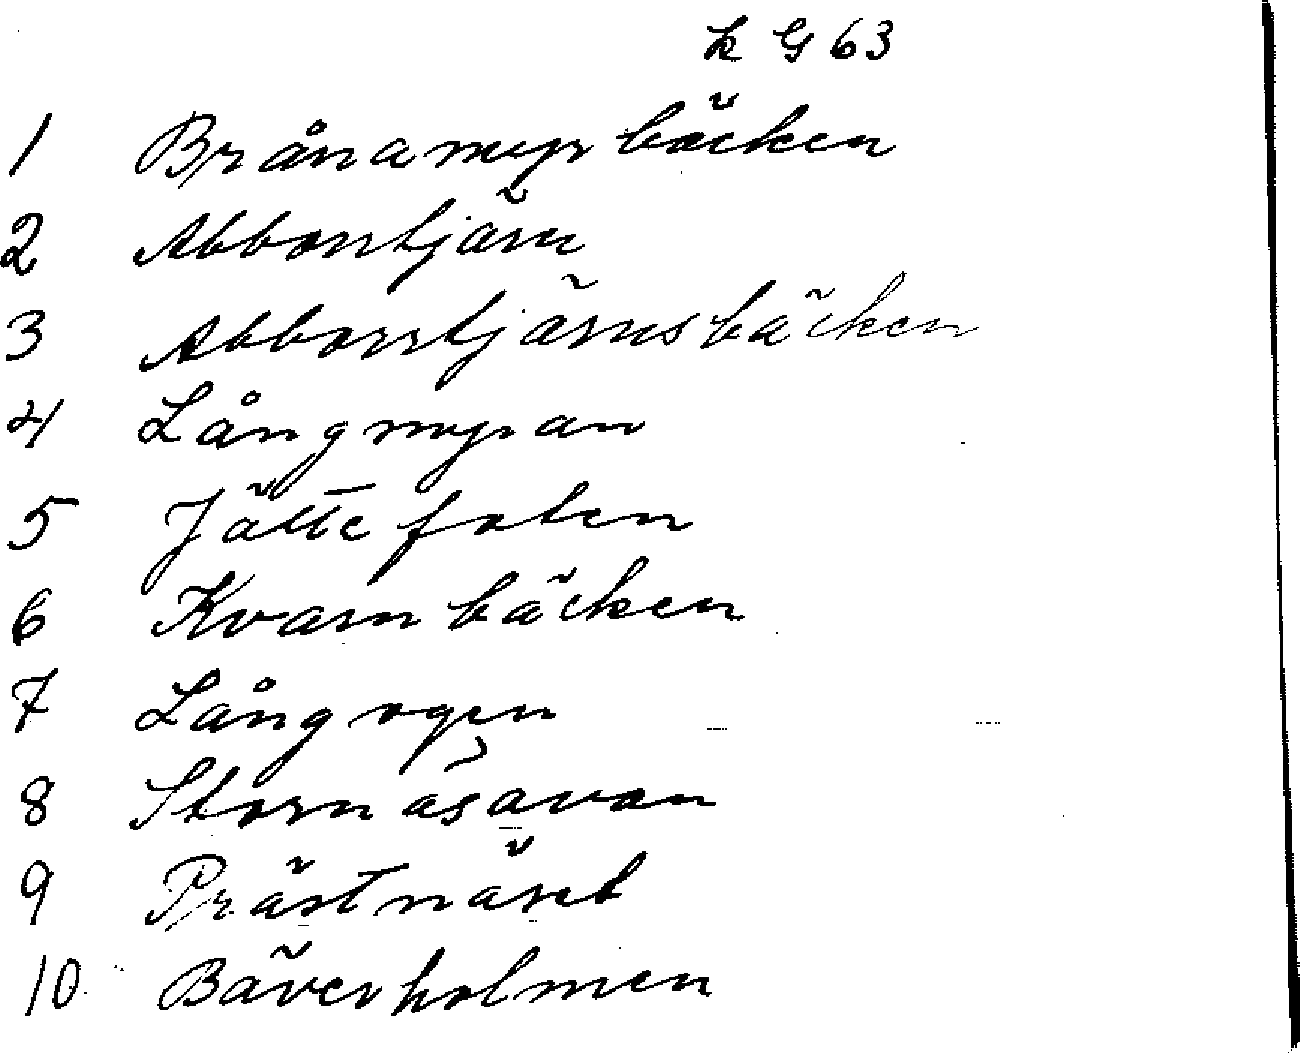 k G 63
1 Brånamyrbäcken
2 Abborrtjärn
3 Abborrtjärnsbäcken
4 Långmyran
5 Jättefoten
6 Kvarnbäcken
7 Långogen
8 Stornäsavan
9 Prästnäset
10 Bäverholmen